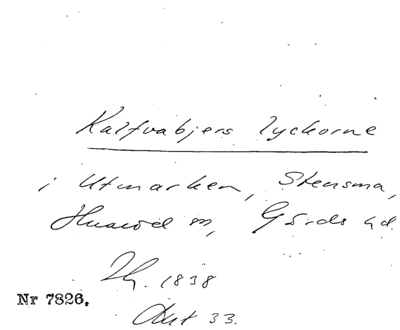 Kalfvabjers lyckorne
i Utmarken, Stensma,
Huaröd sn, Gärds hd.
Lh. 1838
Nr 7826.
Akt 33.